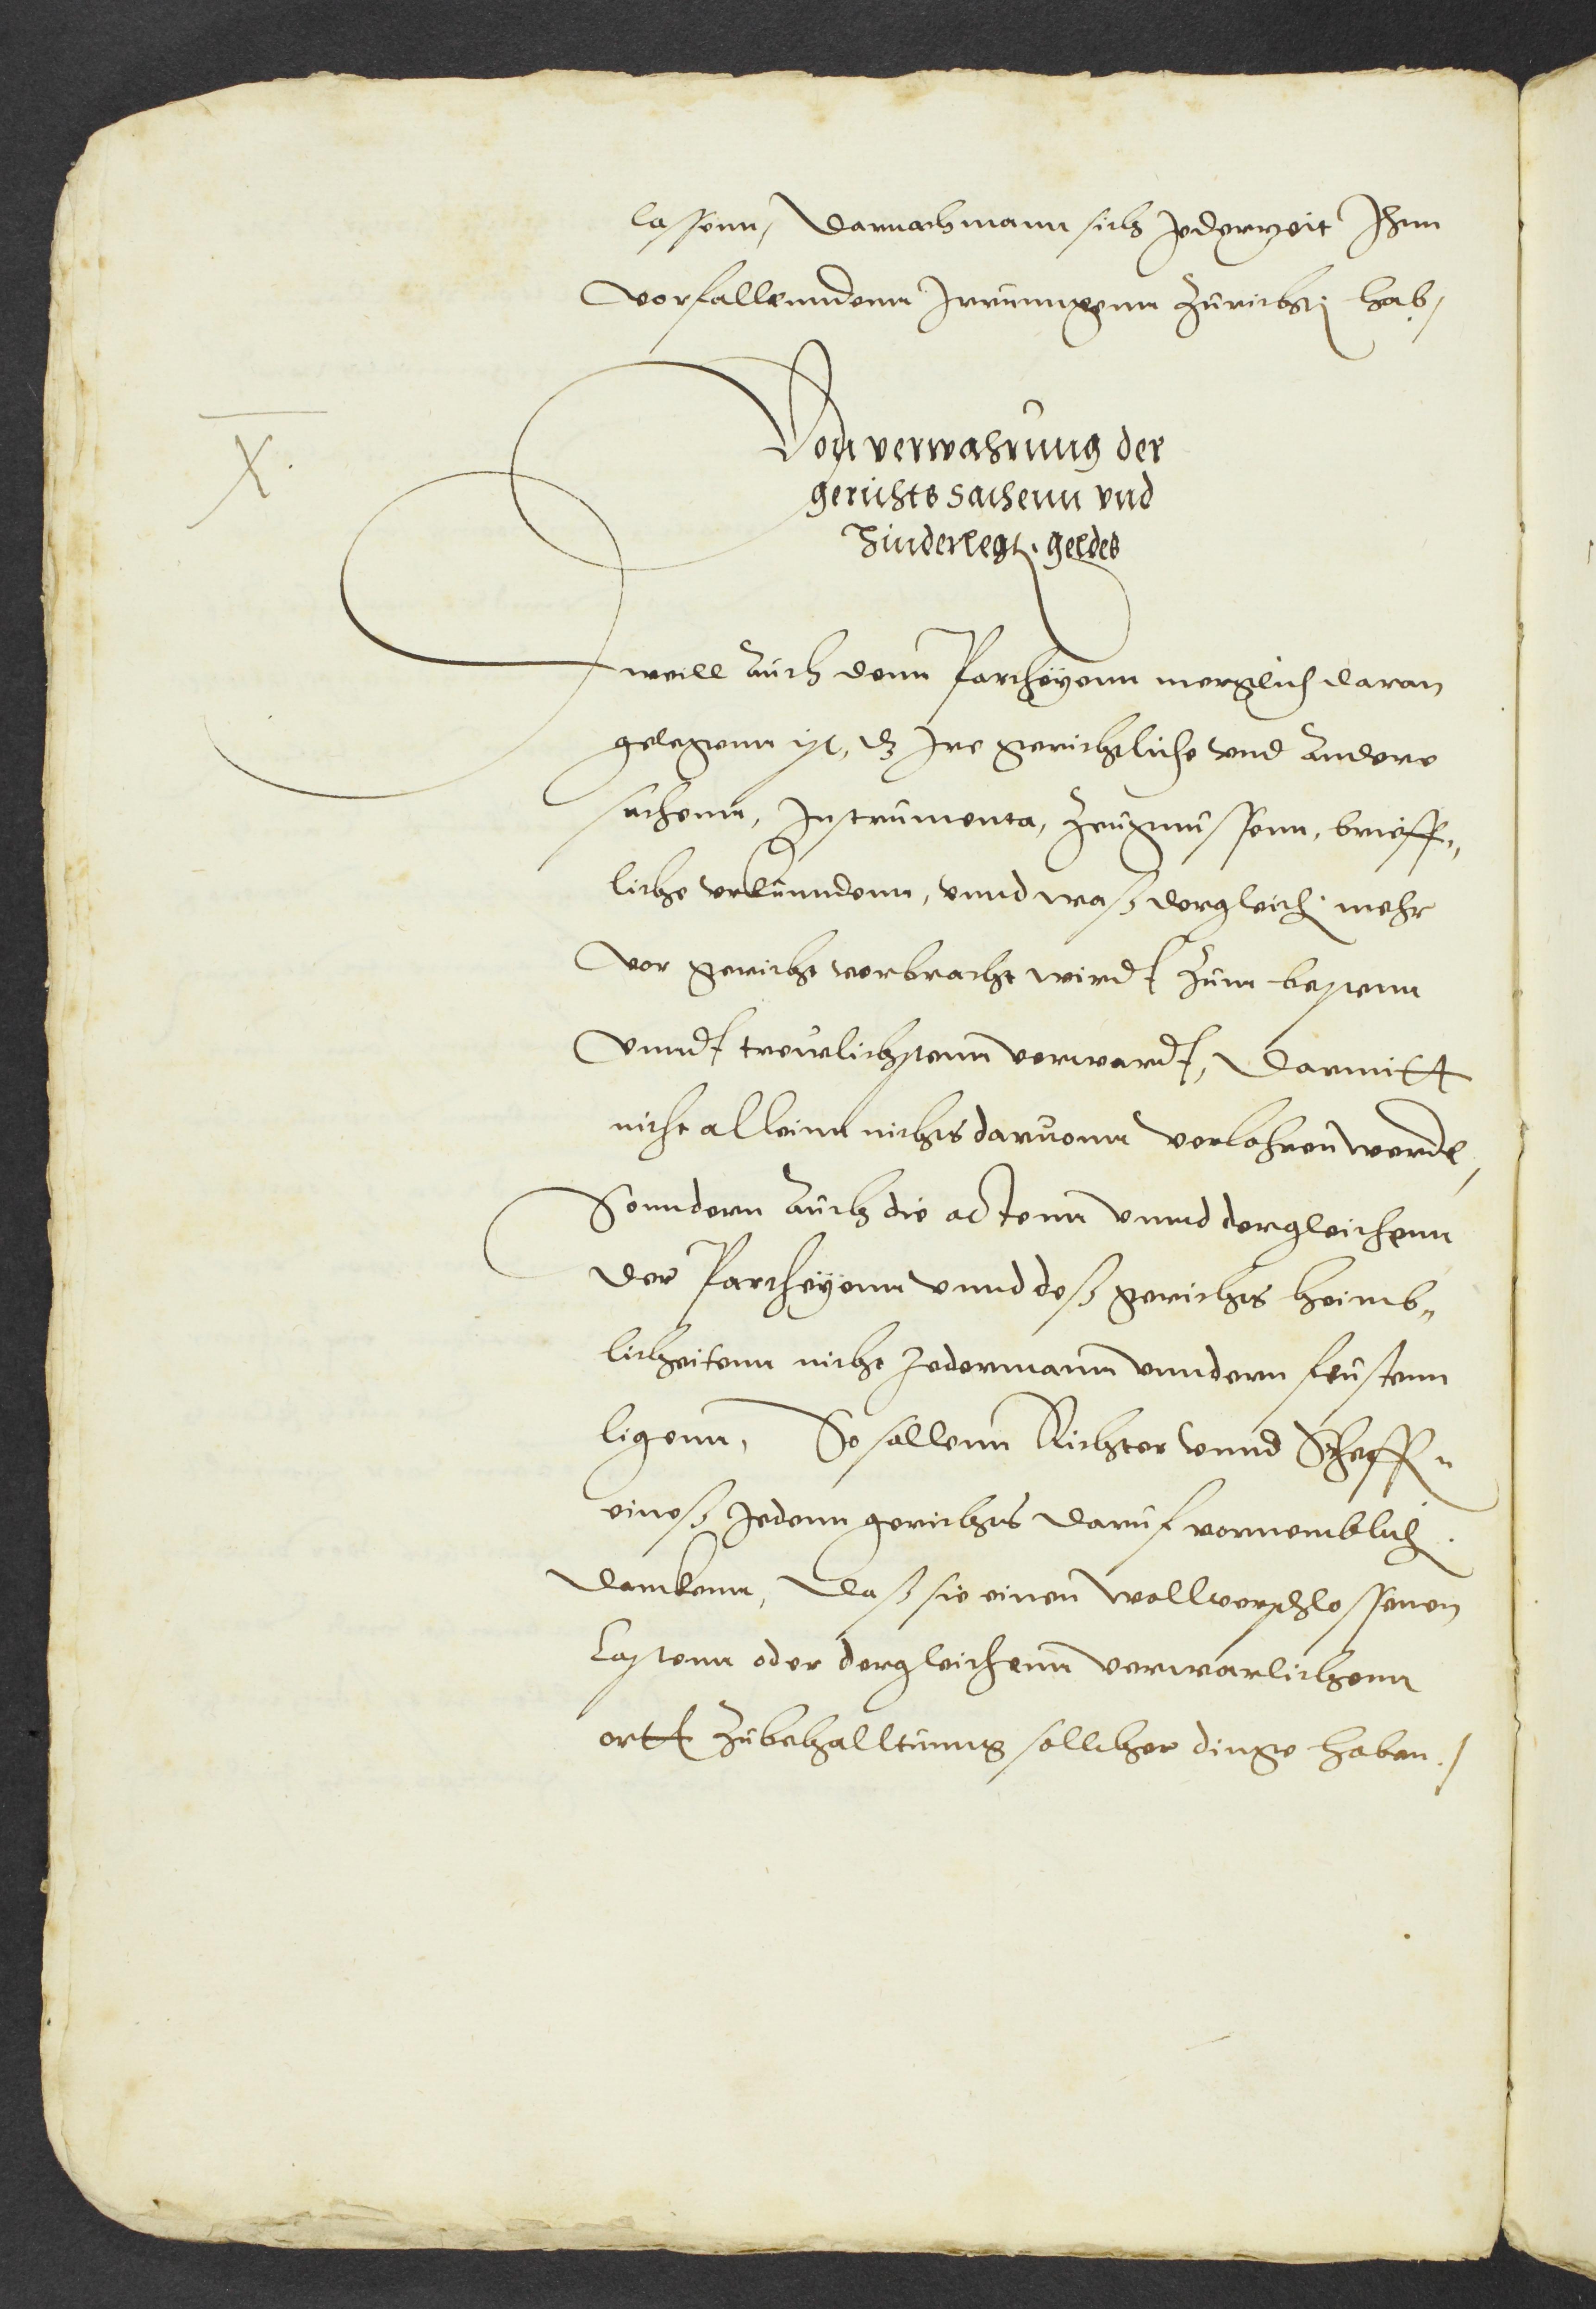 lassenn, Darnach mann sich Jederzeit Ihnn
vorfallenndenn Irrunngenn zurichten hab /
X.
Von verwahrung der
gerichts sachenn vnd
hinderlegten geldes
weill auch denn Partheyenn mergklich daran
gelegenn ist, dz Ire gerichtliche vnd andere
sachenn, Instrumenta, Zeugnussenn, brieff„
liche vrkunndenn, vnnd waß dergleichen mehr
vor gericht vorbracht wirdt zum bestenn
vnndt treuwlichstenn verwardt, Darmitt
nicht allein nichts daruonn verlohren werde,
Sonndern auch die actenn vnnd dergleichenn
der Partheyenn vnnd deß gerichts heimb„
licheitenn nicht Jedermann vnndern feustenn
ligenn, So sollenn Richter vnnd Scheffen
eineß Jedenn gerichts daruf vornemblich
dennkenn, Daß sie einen wollverschlossenen
Kastenn oder dergleichenn verwarlichenn
ortt zubehalltunng sollcher dinge haben. /